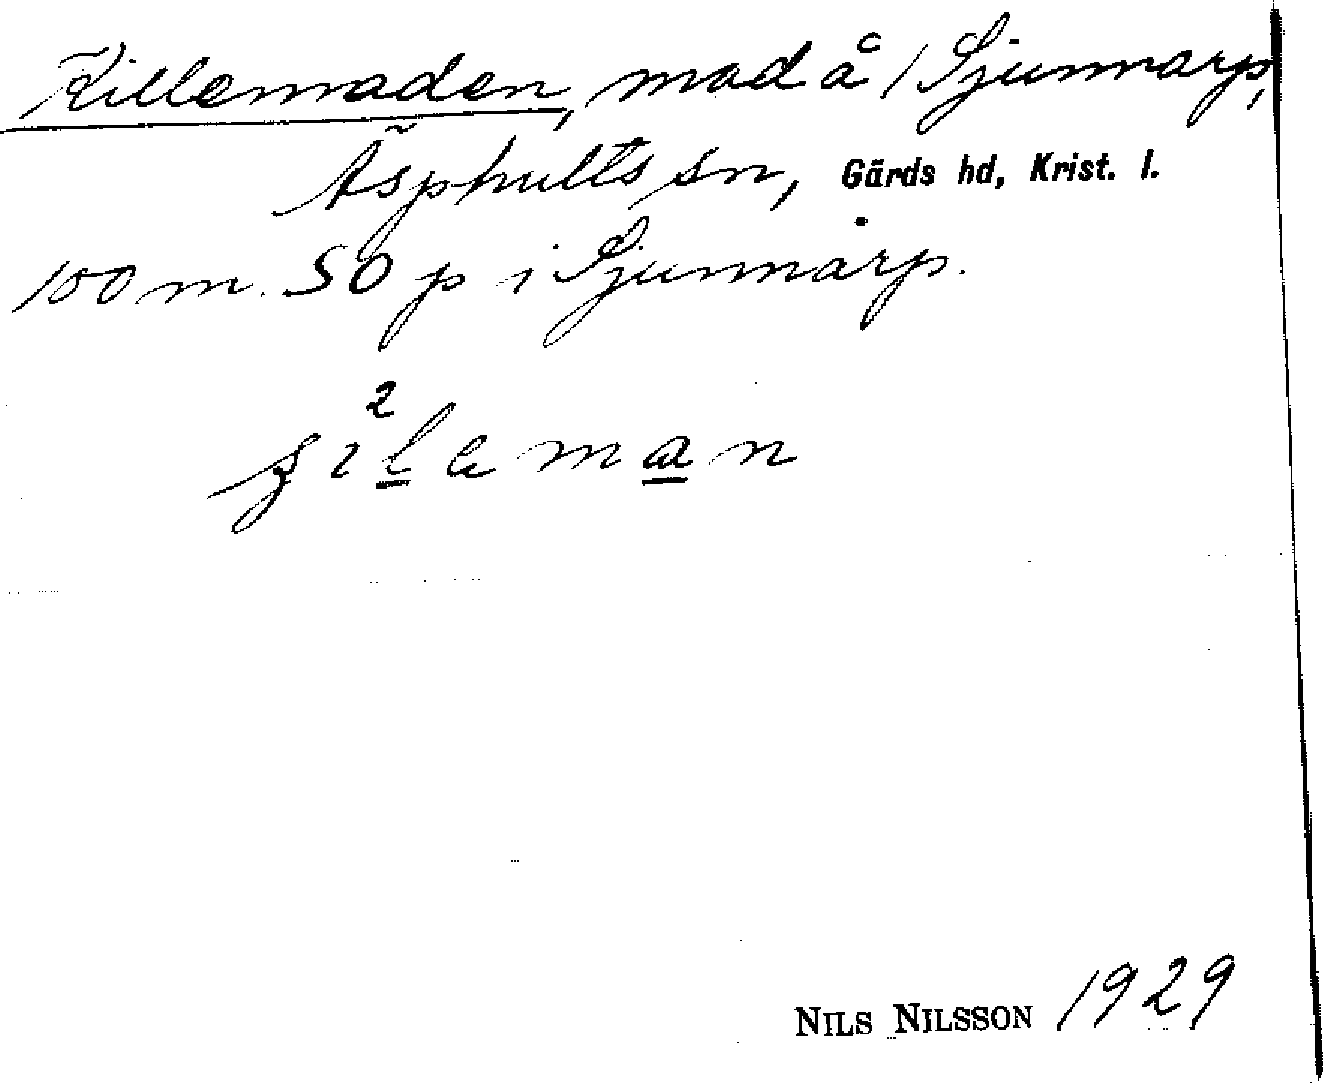 Killemaden, mad å 1 Sjunnarp,
Äsphults sn, Gärds hd, Krist. l.
100 m. SO p i Sjunnarp.
NILS NILSSON 1929